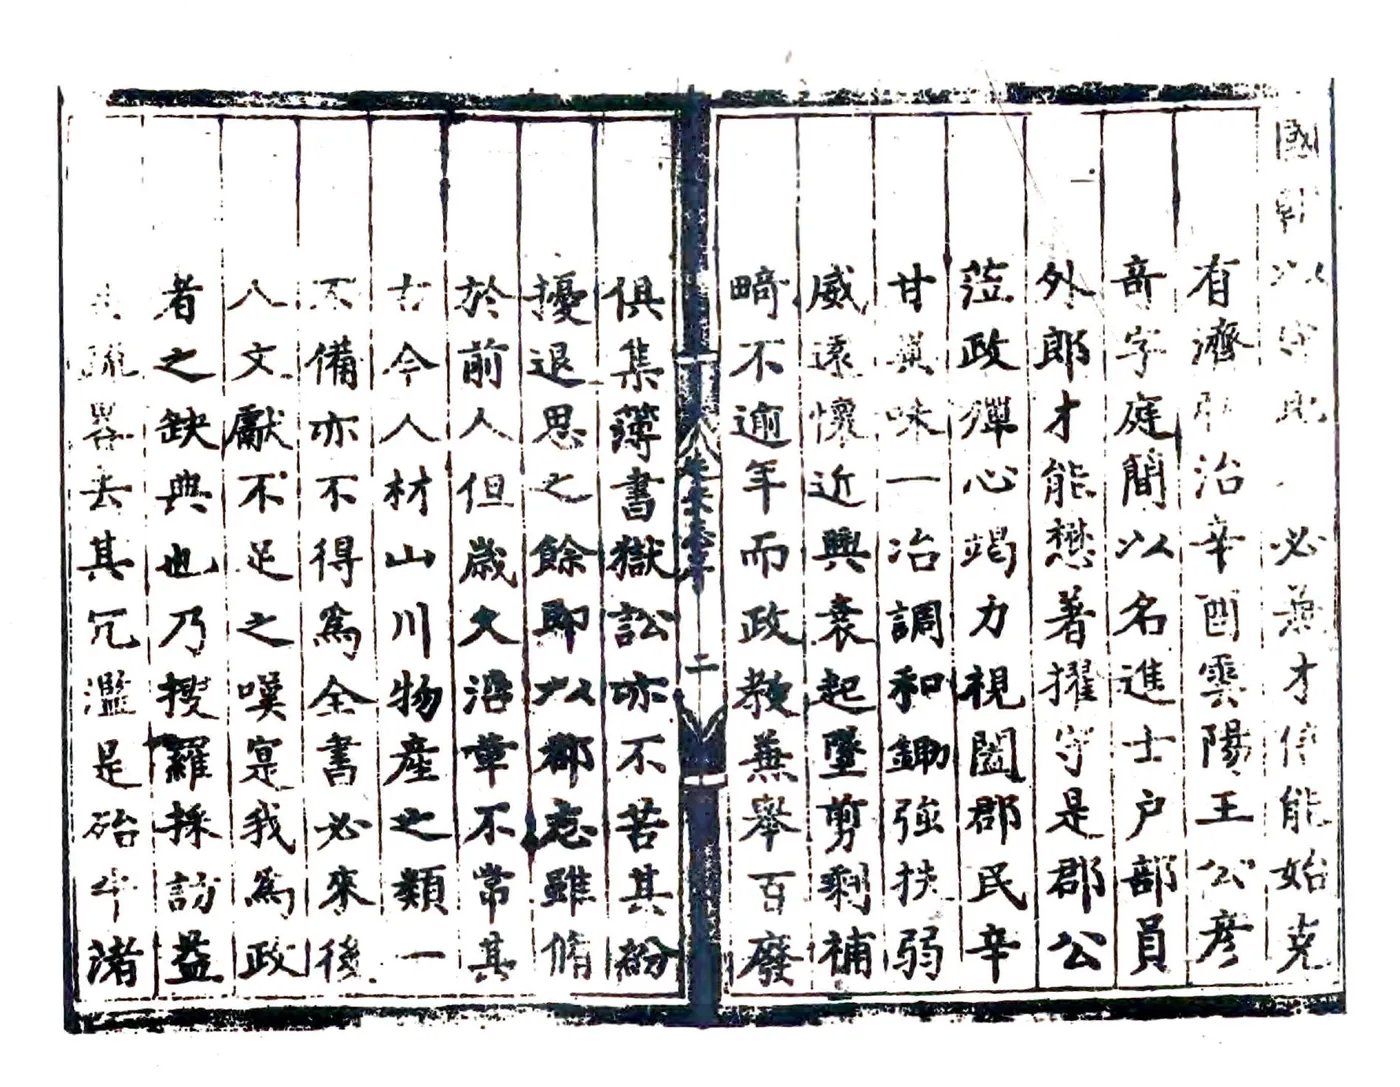 國朝以 必兼才 能始克
有濟 治辛酉雲陽王公彦
竒字庭簡以名進士户部員
外郎才能懋著擢守是郡公
蒞政彈心竭力視闔郡民辛
甘異味一冶調和鋤強扶弱
威遠懷近興衰起墜剪剩補
畸不逾年而政教兼舉百廢
二
俱集薄書獄訟亦不苦其紛
擾退思之餘即以郡志雖脩
於前人但歲久沿革不常其
古今人材山川物産之類一
不備亦不得為全書必來後
人文獻不足之嘆寔我為政
者之缺典也乃搜羅採訪益
其疏畧去其冗濫是 渚